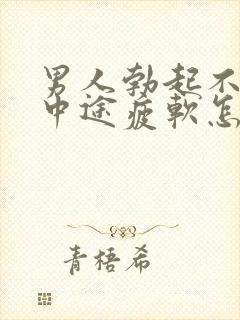 男人勃起不
中途疲軟怎
青梧希